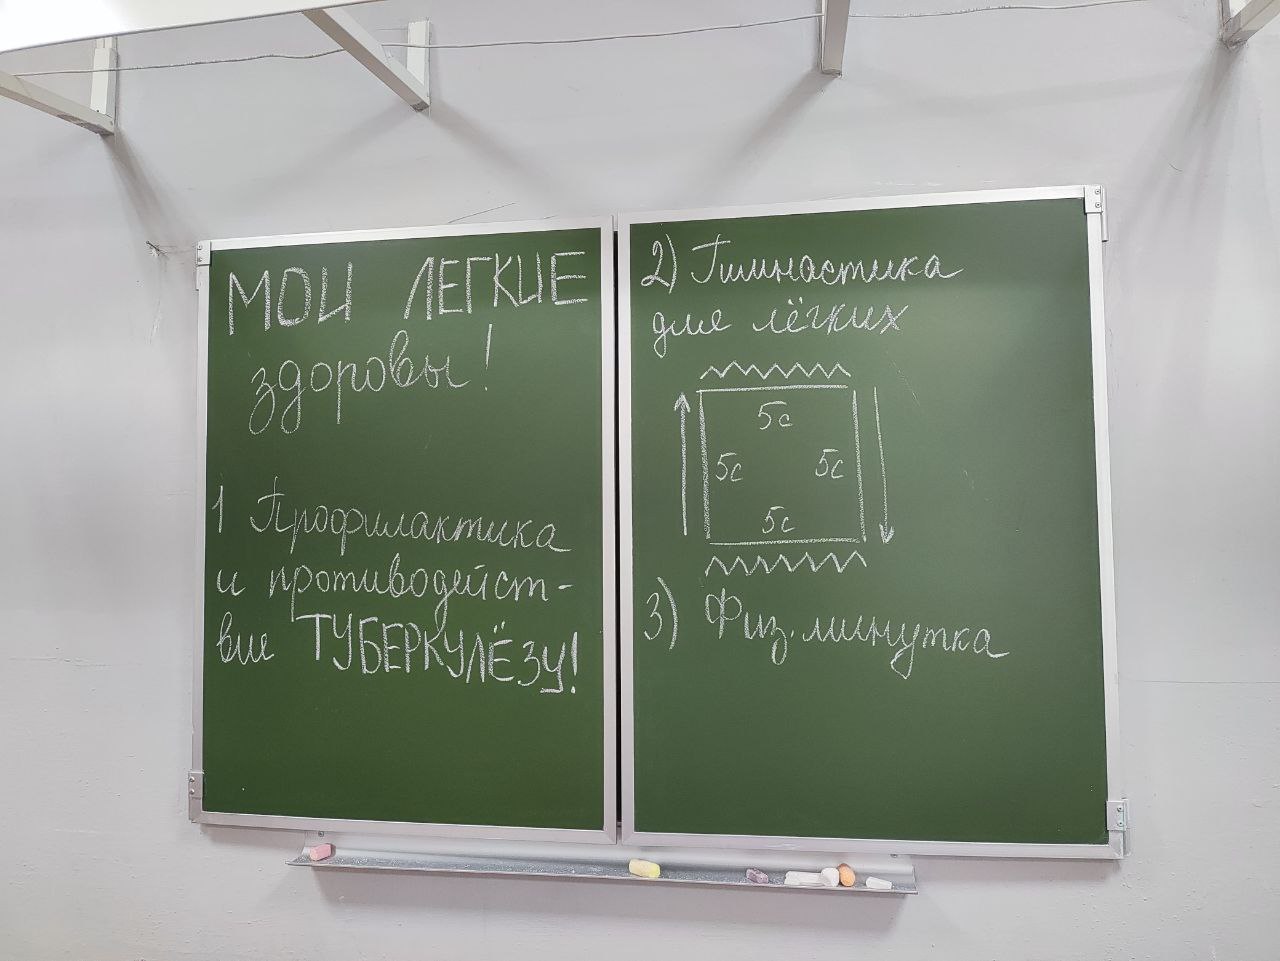 МОИ ЛЕГКИЕ
здоровы!
1 Профилактика
и противодейст-
вие ТУБЕРКУЛЁЗУ!
2) Гимнастика
для лёгких
5с
5с 5с
5с
3) Физ.минутка